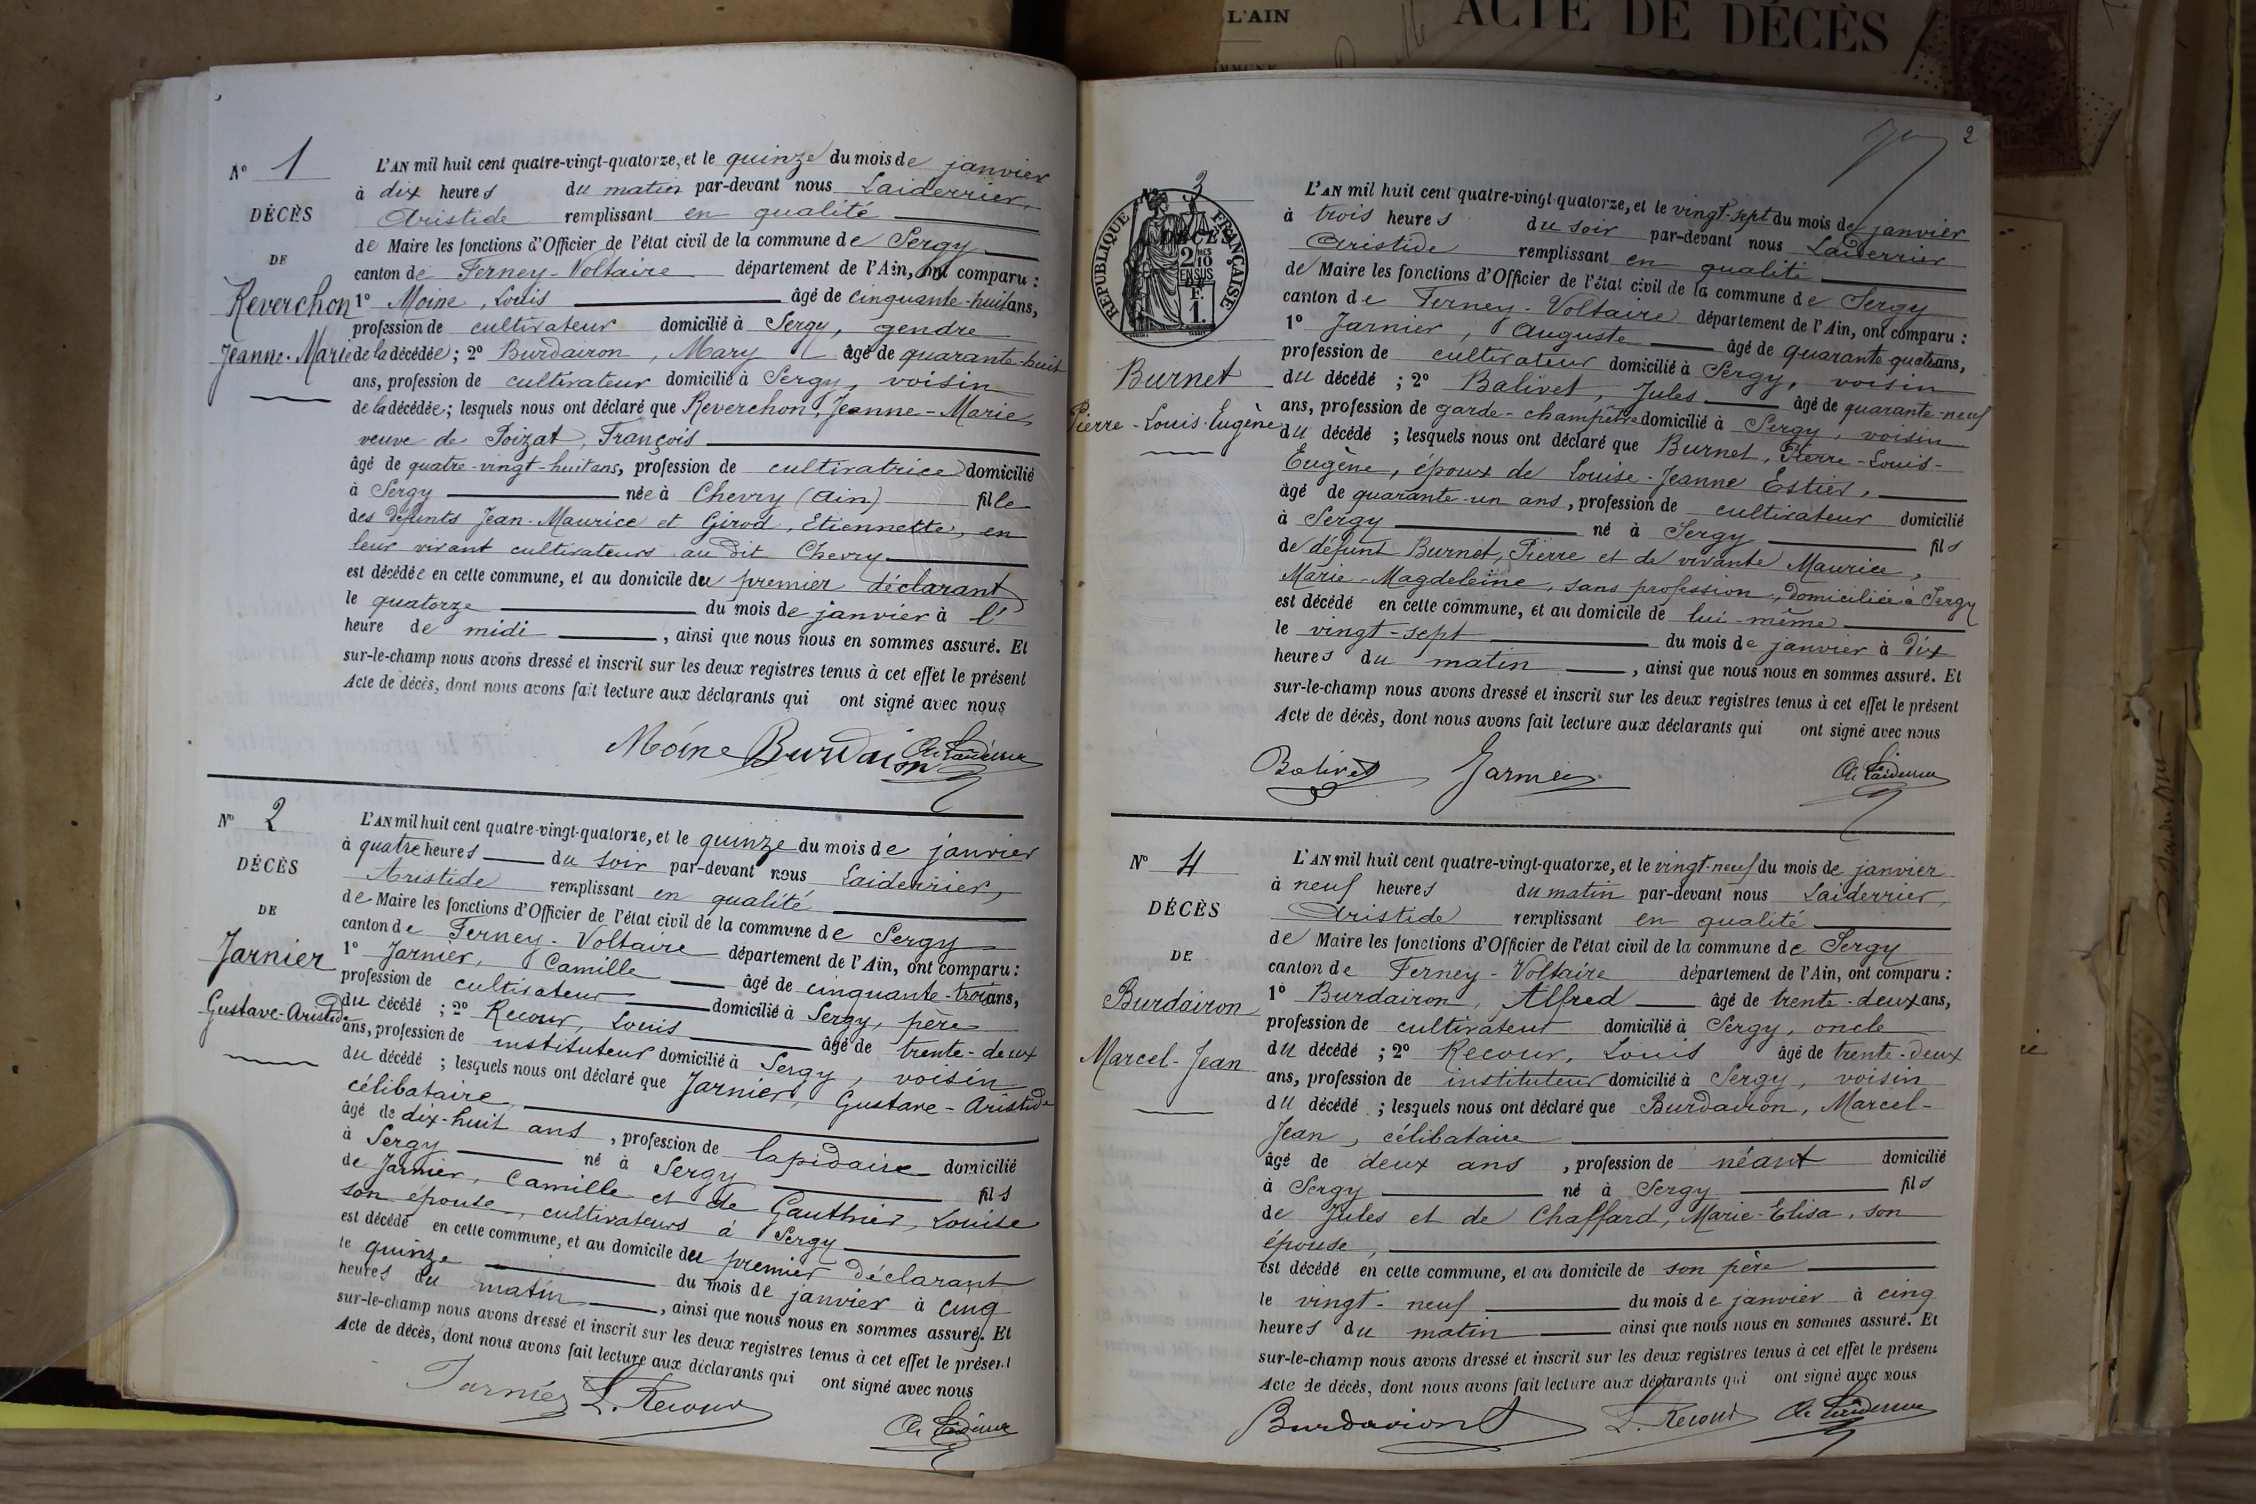 N° 1
DÉCÈS
DE
Reverchon
Jeanne-Marie
L'AN mil huit cent quatre-vingt-quatorze, et le quinze du mois de janvier
à dix heures du matin par-devant nous Laiderrier,
Aristide remplissant en qualité
de Maire les fonctions d'Officier de l'état civil de la commune de Sergy
canton de Ferney-Voltaire département de l'Ain, ont comparu :
1° Moine, Louis âgé de cinquante-huit ans,
profession de cultivateur domicilié à Sergy, gendre
de la décédée ; 2° Burdairon, Mary âgé de quarante-huit
ans, profession de cultivateur domicilié à Sergy, voisin
de la décédée ; lesquels nous ont déclaré que Reverchon, Jeanne-Marie,
veuve de Poizat, François
âgé de quatre-vingt-huit ans, profession de cultivatrice domicilié
à Sergy née à Chevry (Ain) fille
des défunts Jean-Maurice et Girod, Etiennette, en
leur vivant cultivateurs au dit Chevry
est décédée en cette commune, et au domicile du premier déclarant
le quatorze du mois de janvier à l'
heure de midi , ainsi que nous nous en sommes assuré. Et
sur-le-champ nous avons dressé et inscrit sur les deux registres tenus à cet effet le présent
Acte de décès, dont nous avons fait lecture aux déclarants qui ont signé avec nous
Moine Burdairon Ar Laiderrier
N° 2
DÉCÈS
DE
Jarnier
Gustave-Aristide
L'AN mil huit cent quatre-vingt-quatorze, et le quinze du mois de janvier
à quatre heures du soir par-devant nous Laiderrier,
Aristide remplissant en qualité
de Maire les fonctions d'Officier de l'état civil de la commune de Sergy
canton de Ferney-Voltaire département de l'Ain, ont comparu :
1° Jarnier, Camille âgé de cinquante-trois ans,
profession de cultivateur domicilié à Sergy, père
du décédé ; 2° Recour, Louis âgé de trente-deux
ans, profession de instituteur domicilié à Sergy, voisin
du décédé ; lesquels nous ont déclaré que Jarnier, Gustave-Aristide
célibataire,
âgé de dix-huit ans , profession de lapidaire domicilié
à Sergy né à Sergy fils
de Jarnier, Camille et de Gauthier, Louise
son épouse, cultivateurs à Sergy
est décédé en cette commune, et au domicile du premier déclarant
le quinze du mois de janvier à cinq
heures du matin , ainsi que nous nous en sommes assuré. Et
sur-le-champ nous avons dressé et inscrit sur les deux registres tenus à cet effet le présent
Acte de décès, dont nous avons fait lecture aux déclarants qui ont signé avec nous
Jarnier L. Recour
Ar Laiderrier
L'AIN
ACTE DE DÉCÈS
2
N° 3
DÉCÈS
RÉPUBLIQUE FRANÇAISE
2 DMES
10
EN SUS
DU F.
1.
Burnet
Pierre-Louis-Eugène
L'AN mil huit cent quatre-vingt quatorze, et le vingt-sept du mois de janvier
à trois heures du soir par-devant nous Laiderrier
Aristide remplissant en qualité
de Maire les fonctions d'Officier de l'état civil de la commune de Sergy
canton de Ferney-Voltaire département de l'Ain, ont comparu :
1° Jarnier, Auguste âgé de quarante quatre ans,
profession de cultivateur domicilié à Sergy, voisin
du décédé ; 2° Balivet, Jules âgé de quarante-neuf
ans, profession de garde-champêtre domicilié à Sergy, voisin
du décédé ; lesquels nous ont déclaré que Burnet, Pierre-Louis-
Eugène, époux de Louise-Jeanne Estier,
âgé de quarante-un ans, profession de cultivateur domicilié
à Sergy né à Sergy fils
de défunt Burnet, Pierre et de vivante Maurice,
Marie-Magdeleine, sans profession, domiciliée à Sergy
est décédé en cette commune, et au domicile de lui-même
le vingt-sept du mois de janvier à dix
heures du matin , ainsi que nous nous en sommes assuré. Et
sur-le-champ nous avons dressé et inscrit sur les deux registres tenus à cet effet le présent
Acte de décès, dont nous avons fait lecture aux déclarants qui ont signé avec nous
Balivet Jarnier Ar Laiderrier
N° 4
DÉCÈS
DE
Burdairon
Marcel-Jean
L'AN mil huit cent quatre-vingt-quatorze, et le vingt-neuf du mois de janvier
à neuf heures du matin par-devant nous Laiderrier,
Aristide remplissant en qualité
de Maire les fonctions d'Officier de l'état civil de la commune de Sergy
canton de Ferney-Voltaire département de l'Ain, ont comparu :
1° Burdairon, Alfred âgé de trente-deux ans,
profession de cultivateur domicilié à Sergy, oncle
du décédé ; 2° Recour, Louis âgé de trente-deux
ans, profession de instituteur domicilié à Sergy, voisin
du décédé ; lesquels nous ont déclaré que Burdairon, Marcel-
Jean, célibataire
âgé de deux ans , profession de néant domicilié
à Sergy né à Sergy fils
de Jules et de Chaffard, Marie-Elisa, son
épouse,
est décédé en cette commune, et au domicile de son père
le vingt-neuf du mois de janvier à cinq
heures du matin ainsi que nous nous en sommes assuré. Et
sur-le-champ nous avons dressé et inscrit sur les deux registres tenus à cet effet le présent
Acte de décès, dont nous avons fait lecture aux déclarants qui ont signé avec nous
Burdairon L. Recour Ar Laiderrier